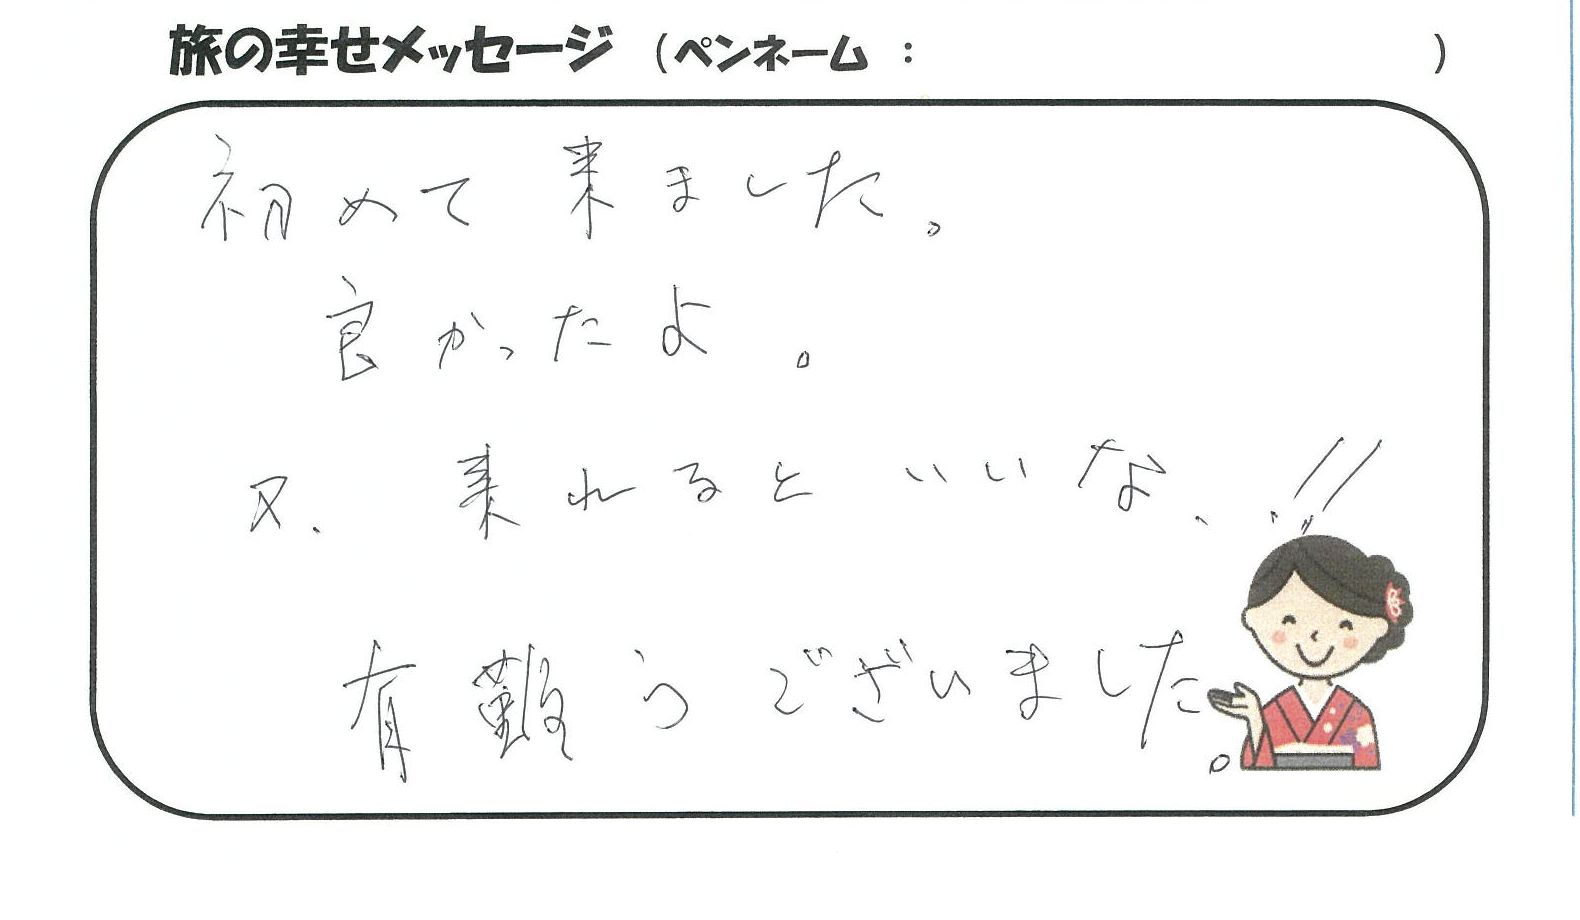 旅の幸せメッセージ (ペンネーム: )
初めて来ました。
良かったよ。
又、来れるといいな、!!
有難うございました。